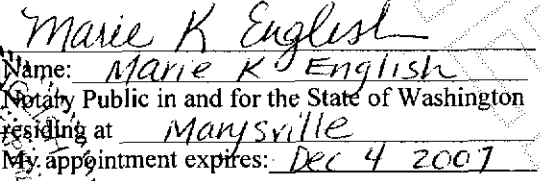 Marie K English
Name: Marie K English
Notary Public in and for the State of Washington
residing at Marysville
My appointment expires: Dec 4 2007